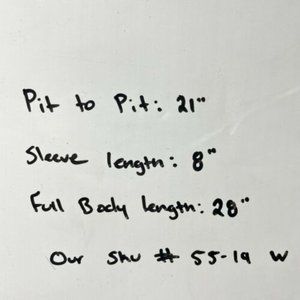 Pit to Pit: 21"
Sleeve length: 8"
Full Body length: 28"
Our Sku # 55-19 W